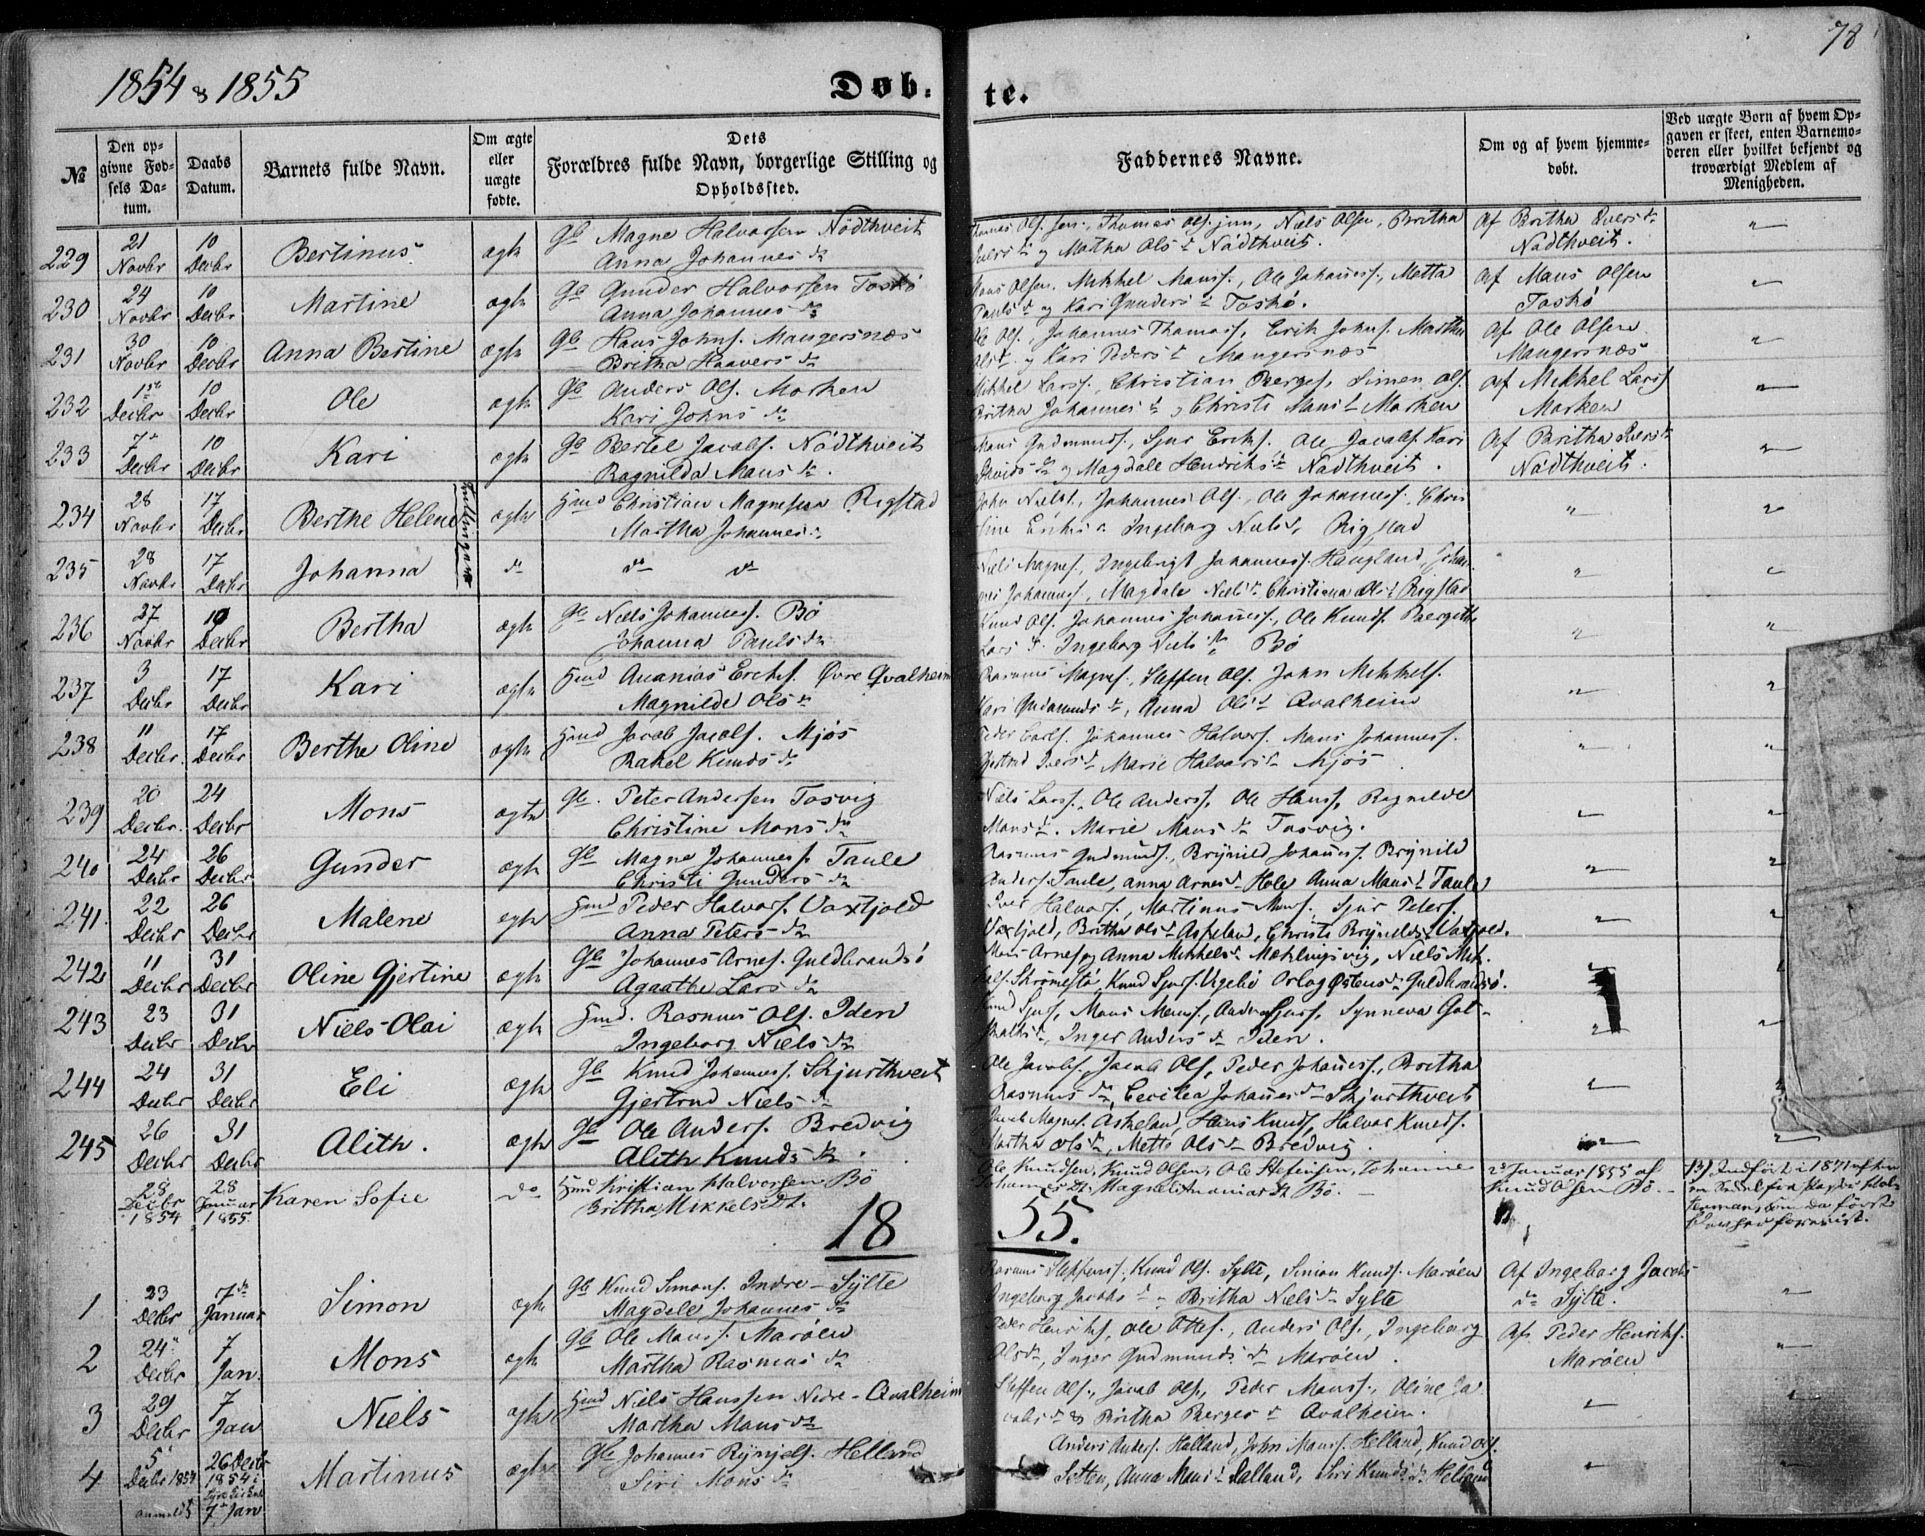 1854 & 1855
Døb-
te.
78
№
Den op-
givne Fød-
sels Da-
tum.
Daabs
Datum.
Barnets fulde Navn.
Om ægte
eller
uægte
fødte.
Dets
Forældres fulde Navn, borgerlige Stilling og
Opholdssted.
Faddernes Navne.
Om og af hvem hjemme-
døbt.
Ved uægte Børn af hvem Op-
gaven er skeet, enten Barnemo-
deren eller hvilket bekjendt og
troværdigt Medlem af
Menigheden.
229 21 Novbr 10 Decbr Bertinus ægte Gb Magne Halvorsen Nödthveit
Anna Johannes dr
Thomas Ols. sen., Thomas Ols. jun, Niels Olsen, Britha
Ivers dr og Martha Ols dr Nödthveit.
Af Britha Ivers dr
Nödthveit.
230 24 Novbr 10 Decbr Martine ægte Gb Gunder Halvorsen Toskö
Anna Johannes dr
Mons Olsen. Mikkel Mons., Ole Johannes., Metta
Pauls dr og Kari Gunders dr Toskö.
af Mons Olsen
Toskö
231 30 Novbr 10 Decbr Anna Bertine ægte Gb Hans Johns. Mangersnæs
Britha Haavers dr
Ole Ols., Johannes Thomas., Erik Johns. Martha
Ols dr og Kari Peders dr Mangersnæs
af Ole Olsen
Mangersnæs
232 1ste Decbr 10 Decbr Ole ægte Gb Anders Ols. Marken
Kari Johns dr
Mikkel Lars., Christian Berges., Simen Ols.
Britha Johannes dr, Christi Mons dr Marken
af Mikkel Lars.
Marken
233 7de Decbr 10 Decbr Kari ægte Gb Bertel Jacobs. Nödthveit
Ragnilda Mons dr.
Mons Gudmunds., Sjur Eriks. Ole Jacobs. Kari
dr og Magdale Hendriks dr Nödthveit.
Af Britha Ivers dr
Nödthveit.
234 28 Novbr 17 Decbr Berthe Helene ægte Huusmd Christian Magnesen Rigstad
Martha Johannes dr
John Niels., Johannes Ols., Ole Johannes., Chris
tine Eriks dr Ingeborg Niels dr, Rigstad
Tvillinger
235 28 Novbr 17 Decbr Johanna do do do
Niels Magnes., Ingebrigt Johannes. Haugland, Johan
nes Johannes., Magdale Niels dr Christiana Ols dr Rigstad
236 27 Novbr 10 Decbr Bertha ægte Gb Niels Johannes. Bö
Johanna Pauls dr
Knud Ols. Johannes Johannes., Ole Knuds. Bergithe
Lars dr Ingeborg Niels dr Bö
237 3 Decbr 17 Decbr Kari ægte Huusmd Ananias Ericks. Øvre Qvalheim
Magnilde Ols dr
Rasmus Magnes., Steffen Ols. John Mikkels.
Kari Gudmunds dr, Anna Ols dr Qvalheim
238 11 Decbr. 17 Decbr Berthe Oline ægte Huusmd Jacob Jacobs. Mjös
Rakel Knuds dr
Peder Carls. Johannes Halvors. Mons Johannes.
Gjertrud Ivers dr Marie Halvors dr Mjös
239 20 Decbr. 24 Decbr Mons ægte Gb. Peter Andersen Tosvig
Christine Mons dr
Niels Lars., Ole Anders., Ole Hans., Ragnilde
Mons dr. Marie Mons dr Tosvig.
240 24 Decbr 26 Decbr Gunder ægte Gb Magne Johannes. Taule
Christi Gunders dr
Rasmus Gudmunds., Brynild Johannes. Brynild
Anders. Taule, Anna Arnes dr Hole Anna Mons dr Taule
241. 22 Decbr 26 Decbr Malene ægte Huusmd Peder Halvors. Vaxtjold
Anna Peters dr
Iver Halvors., Martinus Mons., Sjur Peters.
Vaxtjold, Britha Ols dr Askeland, Christi Brynilds dr Vaxtjold.
242 11 Decbr 31 Decbr Oline Gjertine ægte Gb Johannes Arnes. Guldbrandsö
Agaathe Lars dr
Mons Arnes. og Anna Mikkels dr Mæhlingsvig, Niels Mik-
kels. Skromestö, Knud Sjurs. Ugeliö Orlog Østens dr Guldbrandsö.
243 23 Decbr 31 Decbr Niels Olai ægte Huusmd. Rasmus Ols. Iden
Ingeborg Niels dr
Knud Sjurs., Mons Mons., Anders Sjurs., Synneva Got-
skalks dr, Inger Anders dr Iden.
244 24 Decbr 31 Decbr Eli ægte Gb Knud Johannes. Skjurthveit
Gjertrud Niels dr
Ole Jacobs., Jacob Ols., Peder Johannes., Britha
Rasmus dr, Cecilea Johannes dr Skjurthveit
245 26 Decbr 31 Decbr Alith. ægte Gb Ole Anders. Bredvig
Alith Knuds dr.
Jacob Magnes. Askeland, Hans Knuds., Halvor Knuds.
Martha Ols dr, Mette Ols dr Bredvig.
28 Decbr 1854 28 Januar 1855. Karen Sofie do Huusmd Kristian Halvorsen Bö
Britha Mikkels Dt.
Ole Knudsen, Knud Olsen, Ole Stefensen, Johanne
Johannes Dt. Magnild Ananias Dt Bö.
2 Januar 1855 af
Knud Olsen Bö.
Indført i 1871 efter
1855.
1 23 Decbr 7de Januar Simon ægte Gb Knud Simons. Indre-Sylte
Magdele Johannes dr
Rasmus Steffens., Knud Ols. Sylte, Simon Knuds. Maröen
Ingeborg Jacobs dr Britha Niels dr Sylte
Af Ingeborg Jacobs
dr Sylte.
2 24 Decbr 7 Jan. Mons ægte Gb Ole Mons. Maröen
Martha Rasmus dr
Peder Henriks., Ole Ottes., Anders Ols., Ingeborg
Ols dr, Inger Gudmunds dr Maröen.
Af Peder Henriks.
Maröen
3 29 Decbr 7 Jan Niels ægte Huusmd Niels Hanssen Nedre-Qvalheim
Martha Mons dr
Steffen Ols., Jacob Ols., Peder Mons., Oline Ja
cobs dr & Britha Berges dr Qvalheim.
4 5 Decbr 1854 26 Decbr 1854 i
anmeldt 7de Jan Martinus ægte Gb Johannes Rynjels. Helland
Siri Mons dr
Anders Anders. Halland, John Mons. Helland, Knud Ols.
Setten, Anna Mons dr Halland, Siri Knuds dr Helland